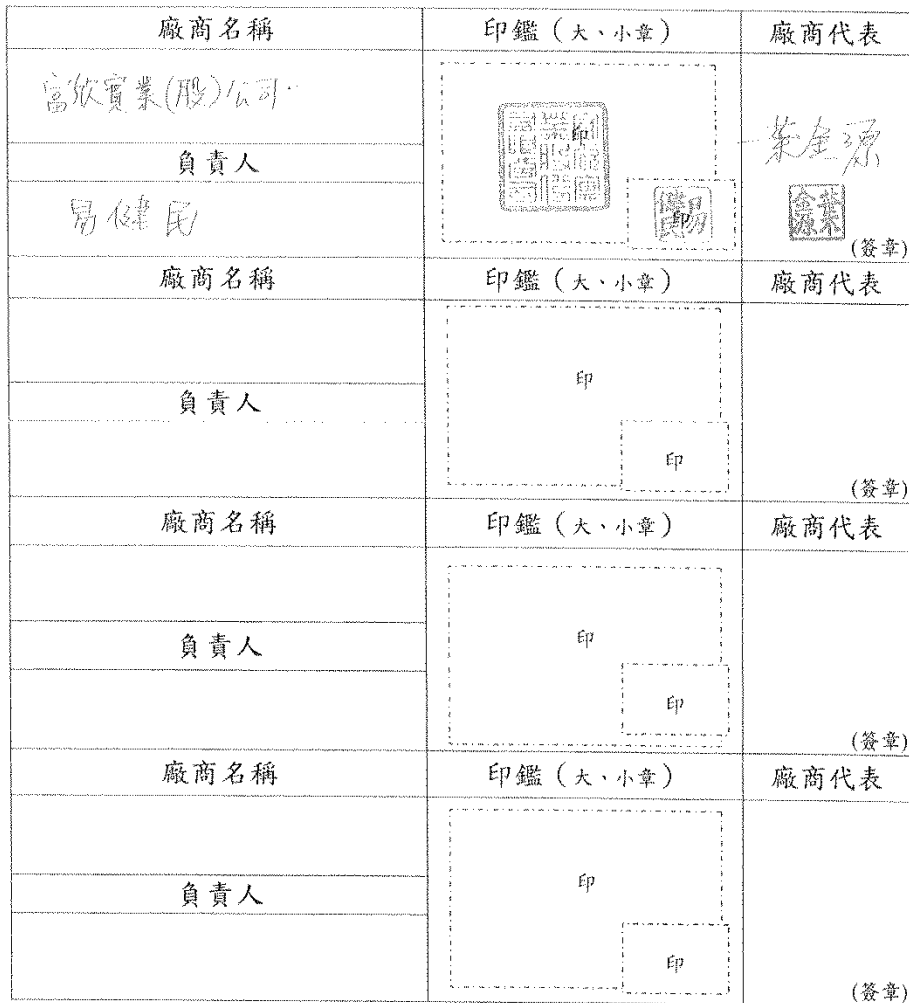 廠商名稱 印鑑（大、小章） 廠商代表
富欣實業(股)公司
印
負責人
葉金源
易健民
印
易健民
葉金源
(簽章)
廠商名稱 印鑑（大、小章） 廠商代表
印
負責人
印
(簽章)
廠商名稱 印鑑（大、小章） 廠商代表
印
負責人
印
(簽章)
廠商名稱 印鑑（大、小章） 廠商代表
印
負責人
印
(簽章)